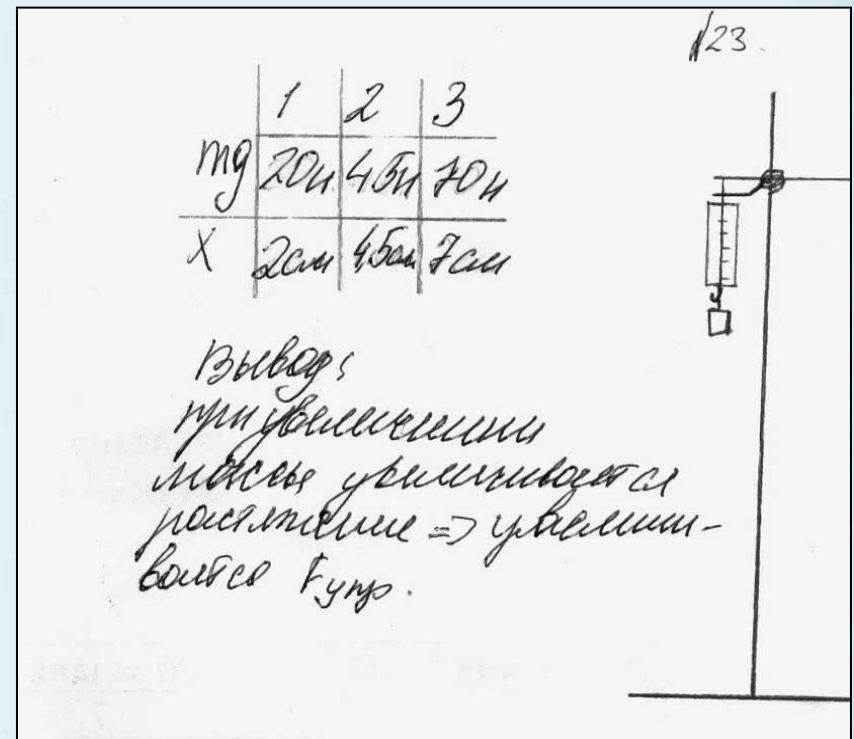 №23.
1 2 3
mg 20н 45н 70н
X 2см 4,5см 7см
Вывод:
при увеличении
массы увеличивается
растяжение => увеличи-
вается Fупр.